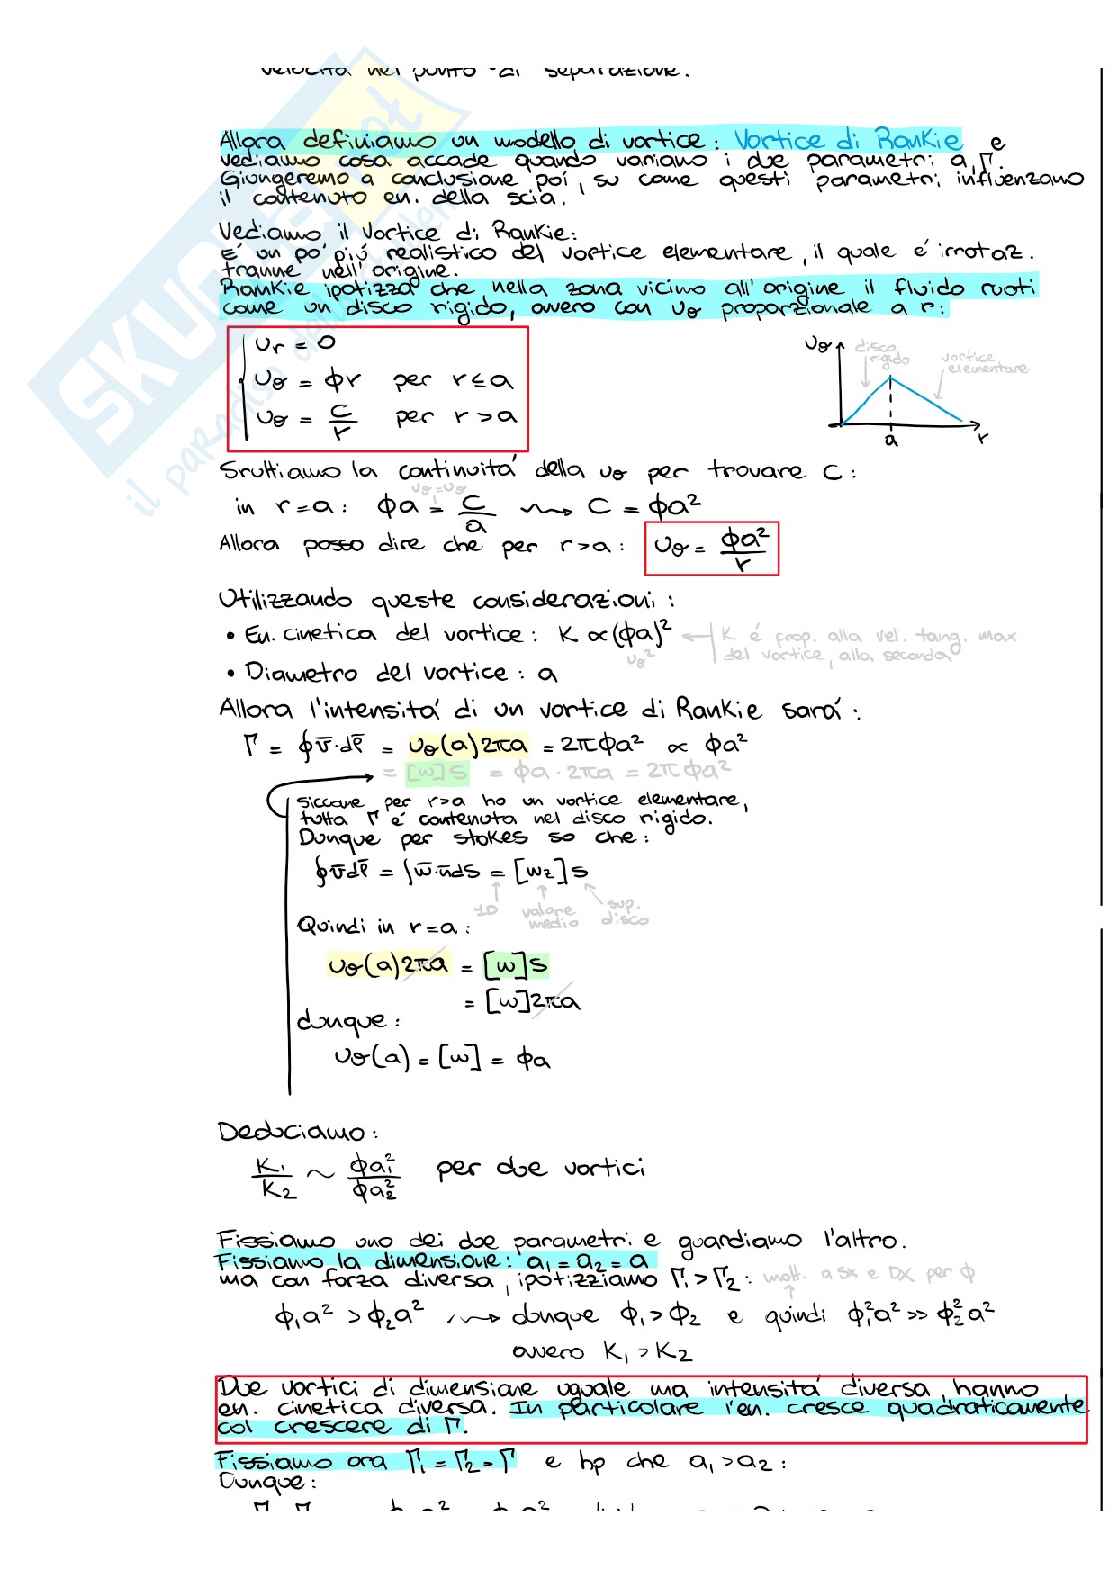 velocità nel punto di separazione.
Allora definiamo un modello di vortice: Vortice di Rankie e
vediamo cosa accade quando variano i due parametri a, Γ.
Giungeremo a conclusione poi, su come questi parametri influenzano
il contenuto en. della scia.
Vediamo il Vortice di Rankie:
É un po' più realistico del vortice elementare, il quale é irrotaz.
tranne nell'origine.
Rankie ipotizza che nella zona vicino all'origine il fluido ruoti
come un disco rigido, ovvero con υθ proporzionale a r:
υr = 0
υθ = ϕr per r ≤ a
υθ = c/r per r > a
υθ
disco rigido
vortice elementare
a
r
Sfruttiamo la continuità della υθ per trovare C:
υθ=υθ
in r=a: ϕa = C/a ⇝ C = ϕa²
Allora posso dire che per r>a: υθ = ϕa²/r
Utilizzando queste considerazioni:
• En. cinetica del vortice: K ∝ (ϕa)² ← K é prop. alla vel. tang. max
υθ² del vortice, alla seconda
• Diametro del vortice: a
Allora l'intensità di un vortice di Rankie sará:
Γ = ∮v̄·dl̄ = υθ(a)2πa = 2πϕa² ∝ ϕa²
= [w]S = ϕa·2πa = 2πϕa²
siccome per r>a ho un vortice elementare,
tutta Γ é contenuta nel disco rigido.
Dunque per stokes so che:
∮v̄dl̄ = ∫w̄·n̄dS = [wz]S
2D valore medio sup. disco
Quindi in r=a:
υθ(a)2πa = [w]S
= [w]2πa
dunque:
υθ(a) = [w] = ϕa
Deduciamo:
K₁/K₂ ~ ϕa₁²/ϕa₂² per due vortici
Fissiamo uno dei due parametri e guardiamo l'altro.
Fissiamo la dimensione: a₁ = a₂ = a
ma con forza diversa, ipotizziamo Γ₁ > Γ₂: molt. a sx e DX per ϕ
ϕ₁a² > ϕ₂a² ⇝ dunque ϕ₁ > ϕ₂ e quindi ϕ₁²a² >> ϕ₂²a²
ovvero K₁ > K₂
Due vortici di dimensione uguale ma intensità diversa, hanno
en. cinetica diversa. In particolare l'en. cresce quadraticamente
col crescere di Γ.
Fissiamo ora Γ₁ = Γ₂ = Γ e hp che a₁ > a₂:
Dunque: